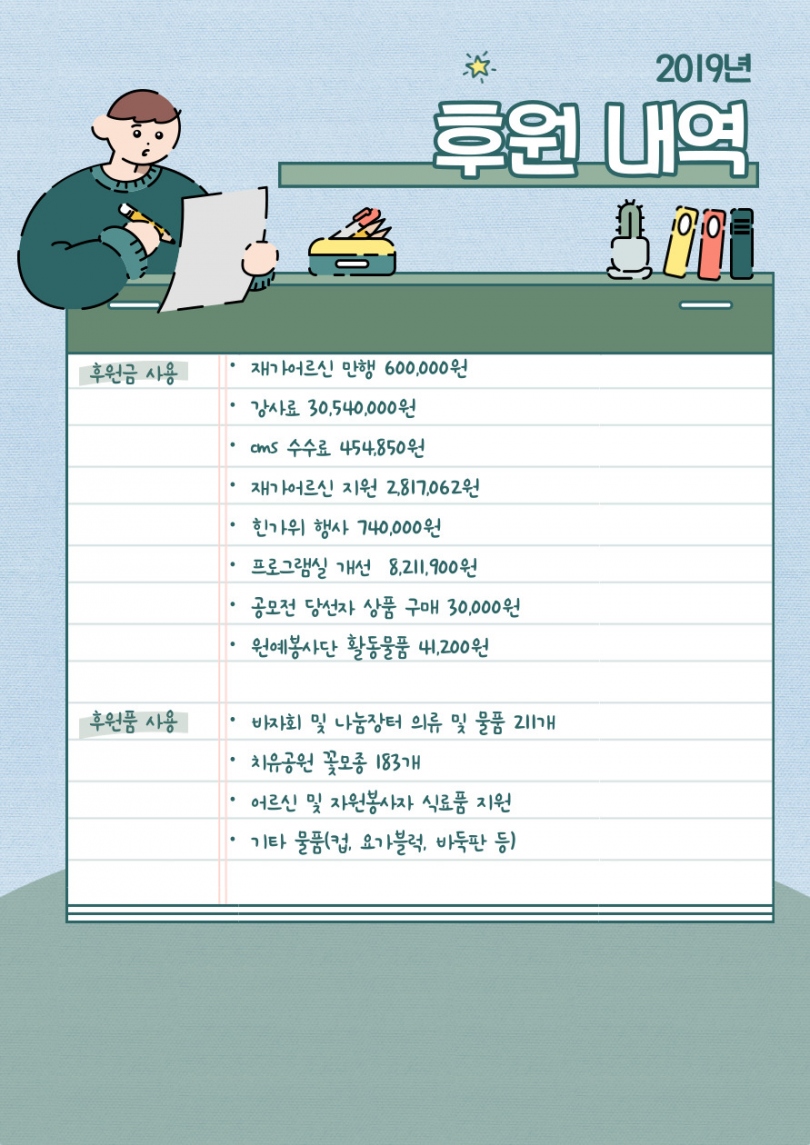 2019년
후원 내역
후원금 사용
• 재가어르신 만행 600,000원
• 강사료 30,540,000원
• cms 수수료 454,850원
• 재가어르신 지원 2,817,062원
• 힌가위 행사 740,000원
• 프로그램실 개선 8,211,900원
• 공모전 당선자 상품 구매 30,000원
• 원예봉사단 활동물품 41,200원
후원품 사용
• 바자회 및 나눔장터 의류 및 물품 211개
• 치유공원 꽃모종 183개
• 어르신 및 자원봉사자 식료품 지원
• 기타 물품(컵, 요가블럭, 바둑판 등)